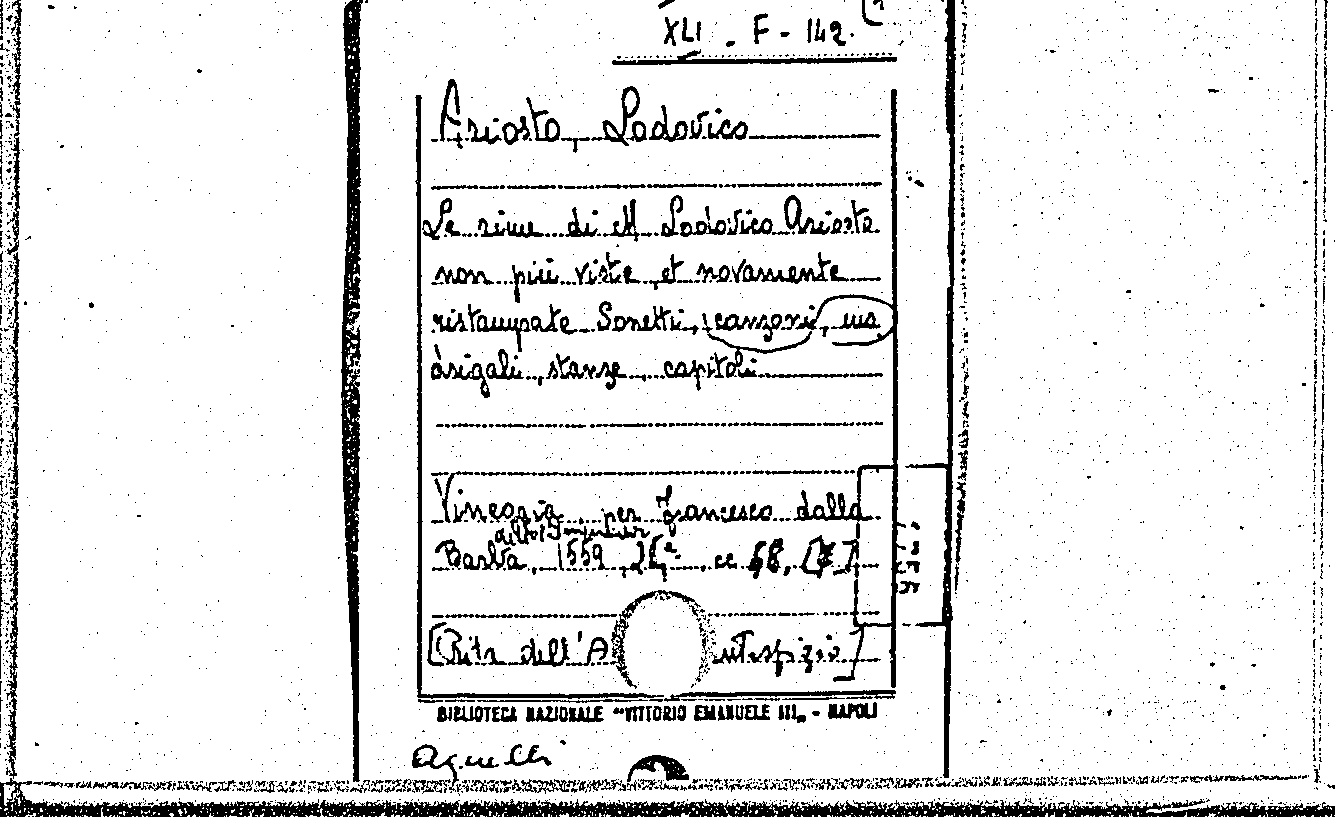 XLI - F - 142
Ariosto, Lodovico
Le rime di M Lodovico Ariosto
non più viste et novamente
ristampate Sonetti, canzoni, ma
drigali, stanze, capitoli
Vinegia, per Francesco dalla
detto l'Imperador
Barba, 1559, cc 68,
[Ritr dell'A utispizio]
BIBLIOTECA NAZIONALE "VITTORIO EMANUELE III„ - NAPOLI
Agnelli